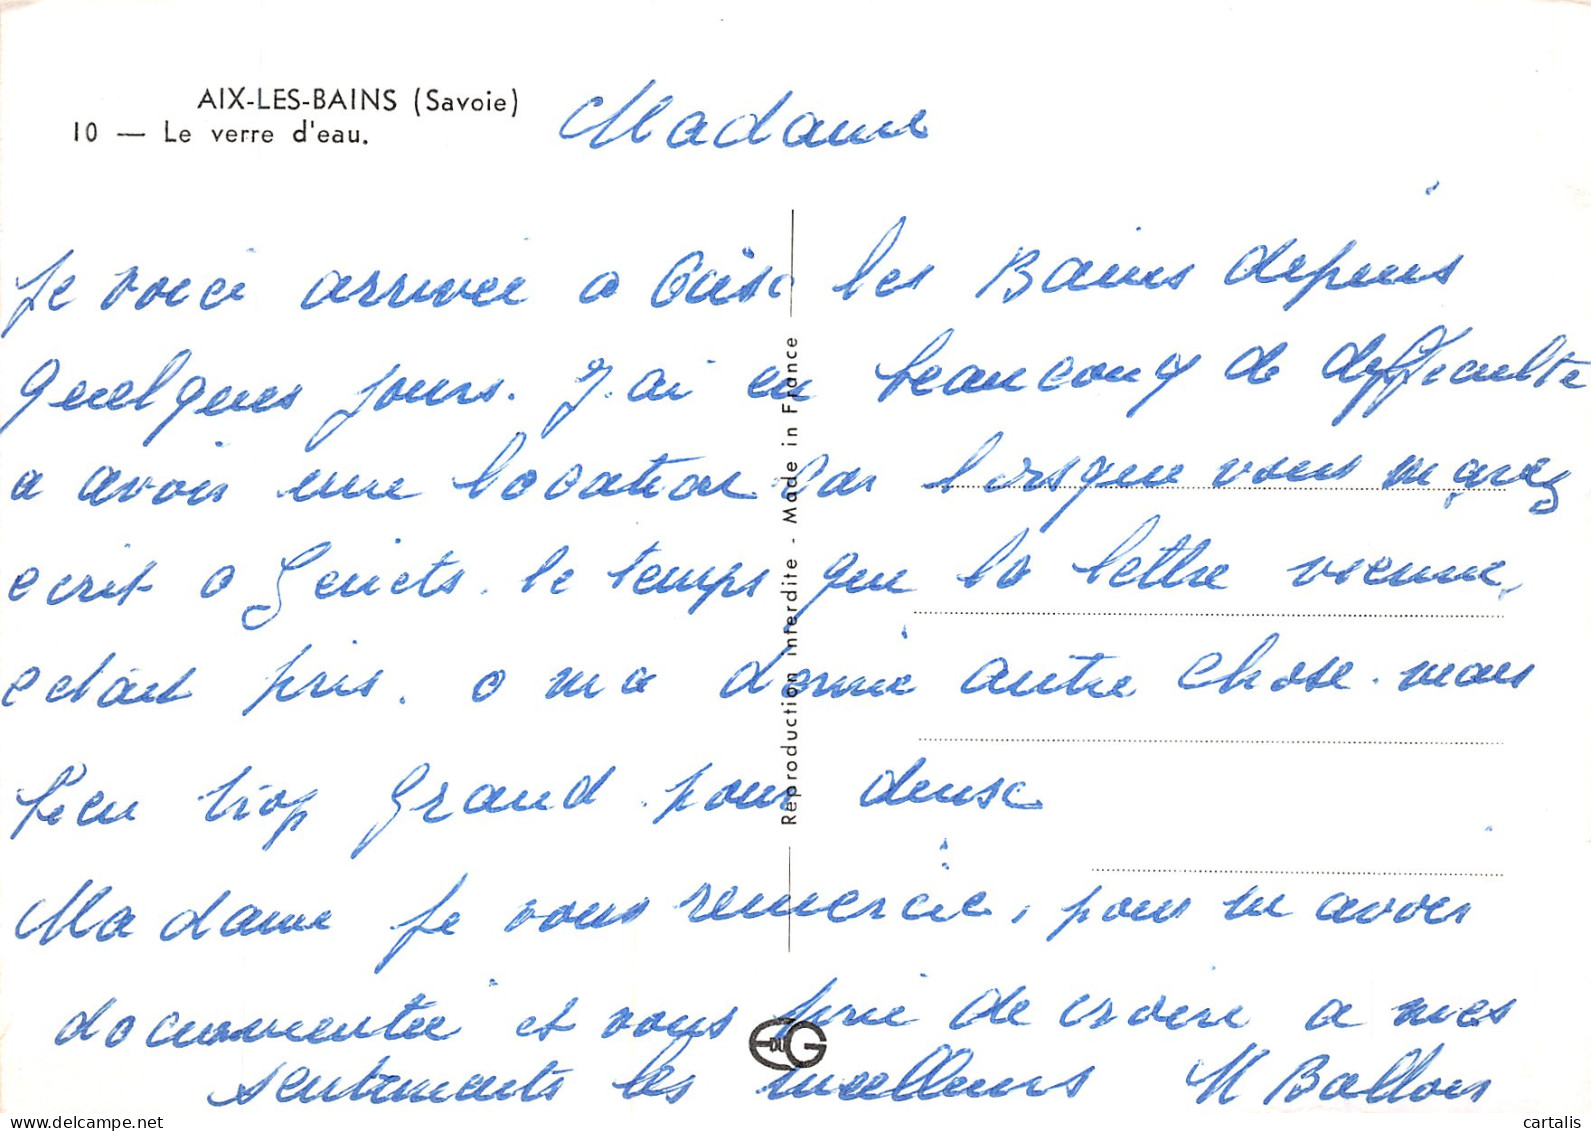 AIX-LES-BAINS (Savoie)
10 — Le verre d'eau.
Madame
Je voici arrivée a les Bains depuis
quelques jours. J.ai eu beaucoup de difficulte
a avoir une location car lorsque vous m
ecrit a le temps que la lettre vienne,
etait pris. a donné autre chose. mais
bien trop grand pour deux
Madame je vous remercie, pour m avoir
documentée et vous prie de croire a mes
sentiments les meilleurs M Ballon
Reproduction interdite - Made in France
E DU G
delcampe.net
cartalis